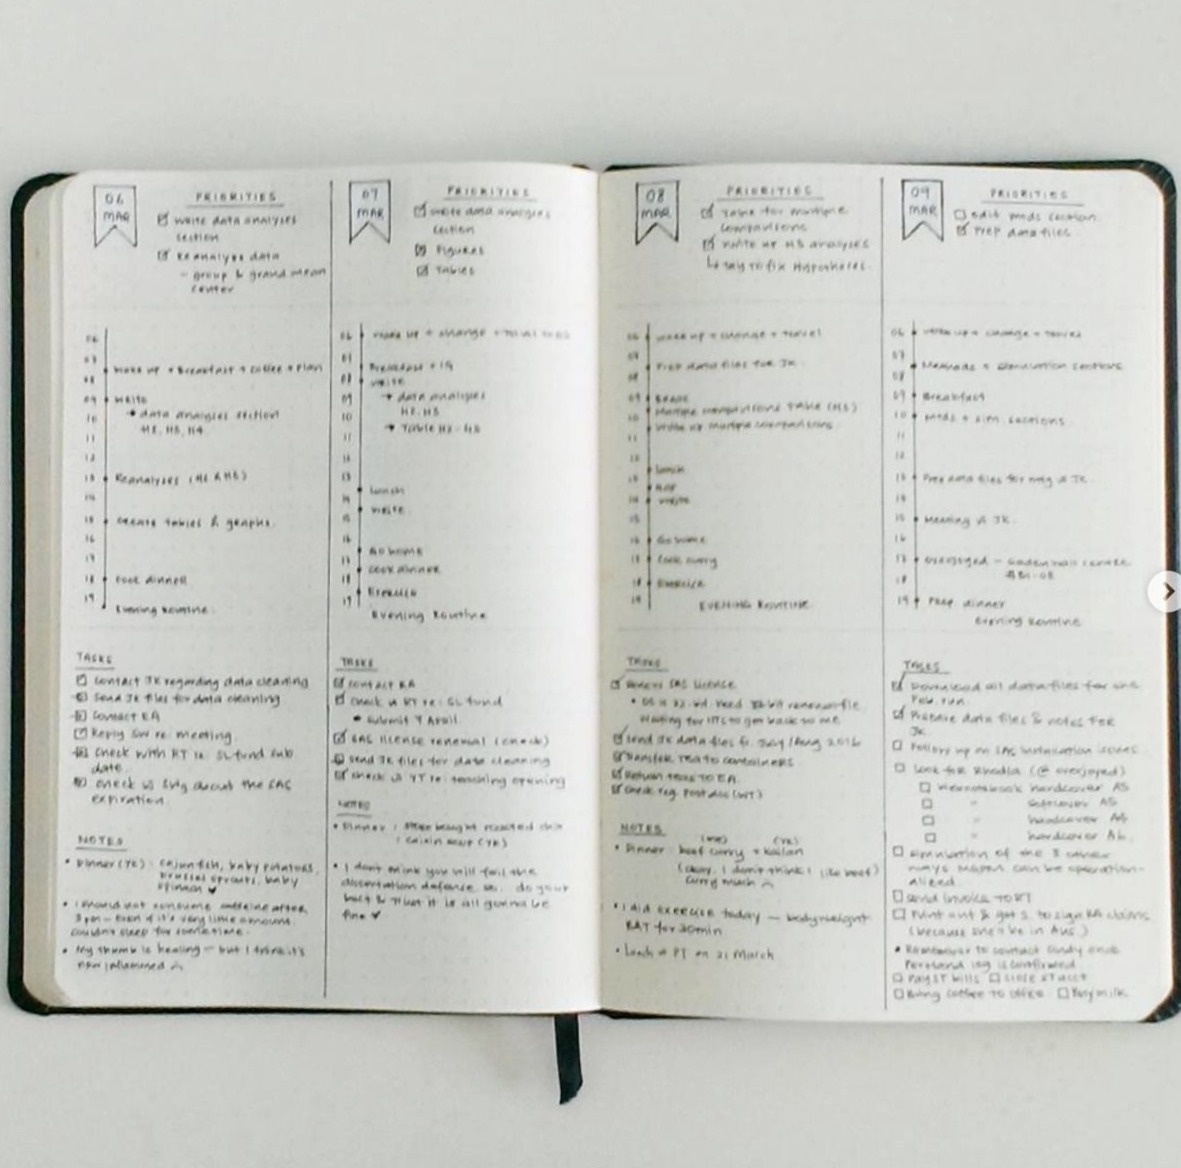 06
MAR
PRIORITIES
write data analyses
section
Reanalyse data
- group & grand mean
center
06
07
08
09
10
11
12
13
14
15
16
17
18
19
wake up + Breakfast + coffee + plan
write
→ data analyses section
H2, H3, H4
Reanalyses (H2 & H3)
Create tables & graphs.
Cook dinner
Evening Routine.
TASKS
Contact JK regarding data cleaning
Send JK files for data cleaning
Contact EA
Reply SW re: meeting.
Check with RT re: SL fund sub
date.
Check w/ about the SAS
expiration.
NOTES
• Dinner (YE): cajun fish, baby potatoes,
brussel sprouts, baby
spinach ♥
• I should not consume caffeine after
3pm - even if it's very little amount
couldn't sleep for sometime.
• My thumb is healing - but I think it's
now inflammed
07
MAR
PRIORITIES
write data analyses
section
Figures
Tables
06
07
08
09
10
11
12
13
14
15
16
17
18
19
wake up + change + travel
Breakfast + IG
write
→ data analyses
H2, H3
→ Table H2 - H3
Lunch
write
Go home
Cook dinner
Exercise
Evening Routine
TASKS
Contact EA
Check w RT re: SL fund
submit 4 April
SAS license renewal (check)
Send JK files for data cleaning
Check w YT re: teaching opening
NOTES
• Dinner: bought roasted
• I don't think you will fail the
dissertation defense so do your
best & trust it is all gonna be
fine ♥
08
MAR
PRIORITIES
Table for multiple
comparisons
write up H3 analyses
↳ try to fix Hypotheses.
06
07
08
09
10
11
12
13
14
15
16
17
18
19
wake up + change + travel
Prep data files for JK
Multiple comparisons Table (H3)
write up multiple comparisons
Lunch
write
Go home
Cook curry
Exercise
EVENING ROUTINE
TASKS
Renew SAS license
waiting for to get back to me
Send JK data files fr. July/Aug 2016
Transfer teas to containers
Return teas to EA.
Check reg. post doc (WT)
NOTES
• Dinner: beef curry + kailan
(okay, I don't think I like beef)
curry much
• I did exercise today - bodyweight
for 30min
• Lunch w PT on 21 March
09
MAR
PRIORITIES
edit mtds section.
Prep data files.
06
07
08
09
10
11
12
13
14
15
16
17
18
19
wake up + change + travel
Methods + simulation sections
Breakfast
mtds + sim. sections
Prep data files for mtg w JK.
Meeting w JK.
Overjoyed -
#B1-08
Prep dinner
evening Routine.
TASKS
Download all data files for the
run.
Prepare data files & notes for
JK
Follow up on SAS installation issues.
Look for Rhodia (@ overjoyed)
hardcover A5
" softcover A5
" hardcover
" hardcover
Simulation of the 3 other
ways can be operation-
alized.
Send invoice to RT
Print out & get S to sign RA claims
(because she'd be in Aus.)
• Remember to contact once
is confirmed
Pay ST bills
Bring coffee to office
Buy milk